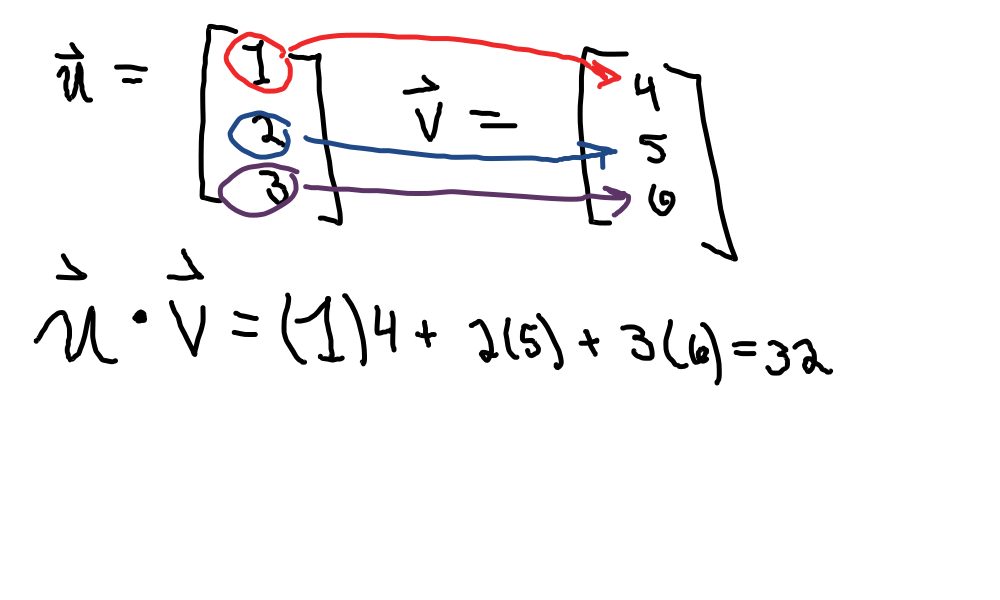 u⃗ = [1 2 3] v⃗ = [4 5 6]
u⃗ · v⃗ = (1)4 + 2(5) + 3(6) = 32